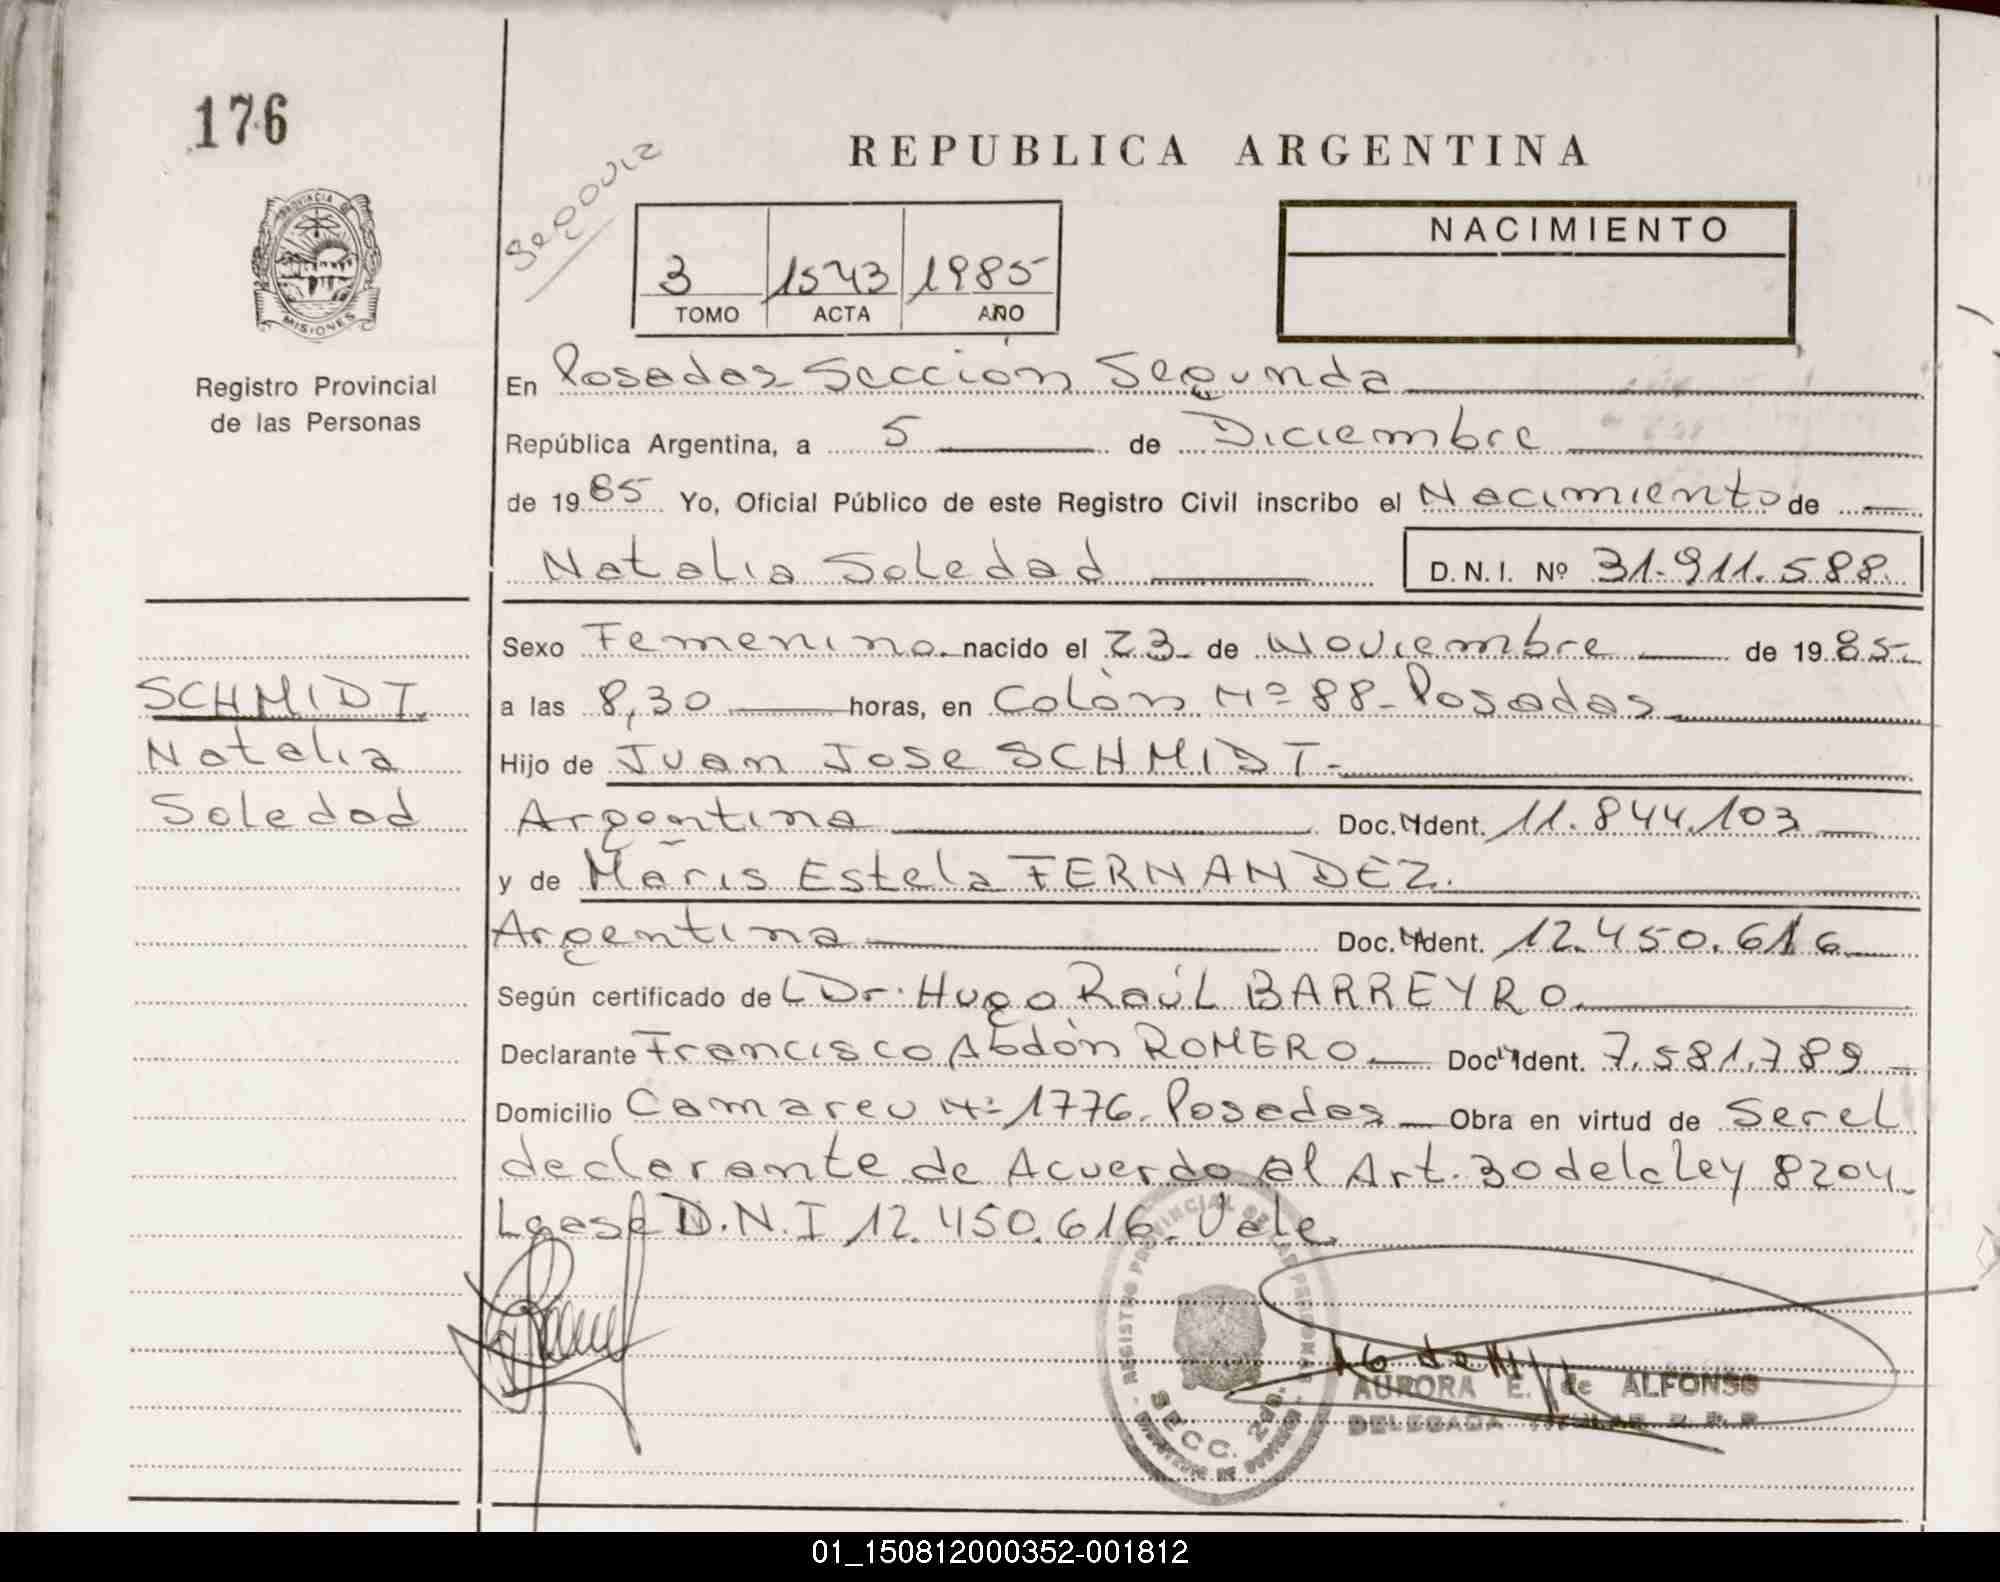 176
REPUBLICA ARGENTINA
PROVINCIA DE
MISIONES
Registro Provincial
de las Personas
3 1543 1985
TOMO ACTA AÑO
NACIMIENTO
En Posadas Sección Segunda
República Argentina, a 5 de Diciembre
de 1985 Yo, Oficial Público de este Registro Civil inscribo el Nacimiento de
Natalia Soledad D.N.I. Nº 31.911.588
Sexo Femenino nacido el 23 de Noviembre de 1985
SCHMIDT
a las 8,30 horas, en Colón Nº 88 - Posadas
Natalia
Hijo de Juan Jose SCHMIDT.
Soledad
Argentina Doc. Ident. 11.844.103
y de Maris Estela FERNANDEZ.
Argentina Doc. Ident. 12.450.616
Según certificado del Dr. Hugo Raúl BARREYRO.
Declarante Francisco Abdón ROMERO Doc Ident. 7.581.789
Domicilio Nº 1776. Posadas Obra en virtud de Ser el
declarante de Acuerdo al Art. 30 de la Ley 8204.
Lease D.N.I 12.450.616. Vale.
REGISTRO PROVINCIAL DE LAS PERSONAS
SECC. 2da.
AURORA E. de ALFONSO
DELEGADA TITULAR R. P. P.
01_150812000352-001812